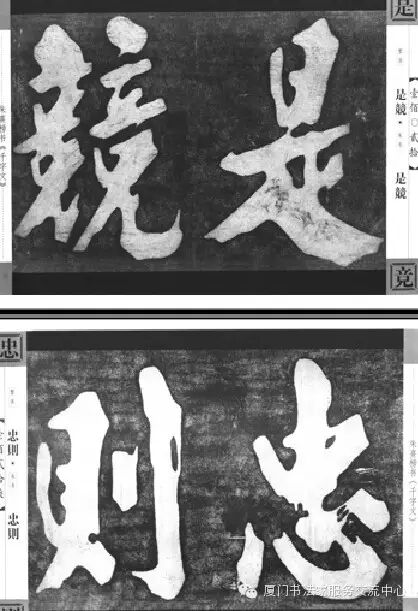 是
是競
是競
竞
朱熹榜书《千字文》
忠則
忠
忠則
忠则
朱熹榜书《千字文》
厦门书法家服务交流中心